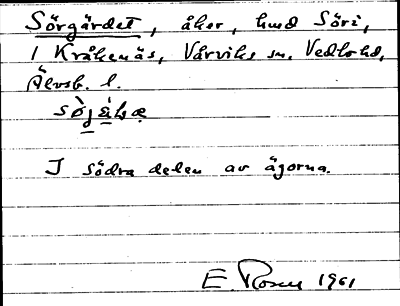 Sörgärdet, åker, hmd Söri,
1 Kråkenäs, Vårviks sn. Vedbo hd,
Älvsb. l.
I södra delen av ägorna.
E. Rosen 1961